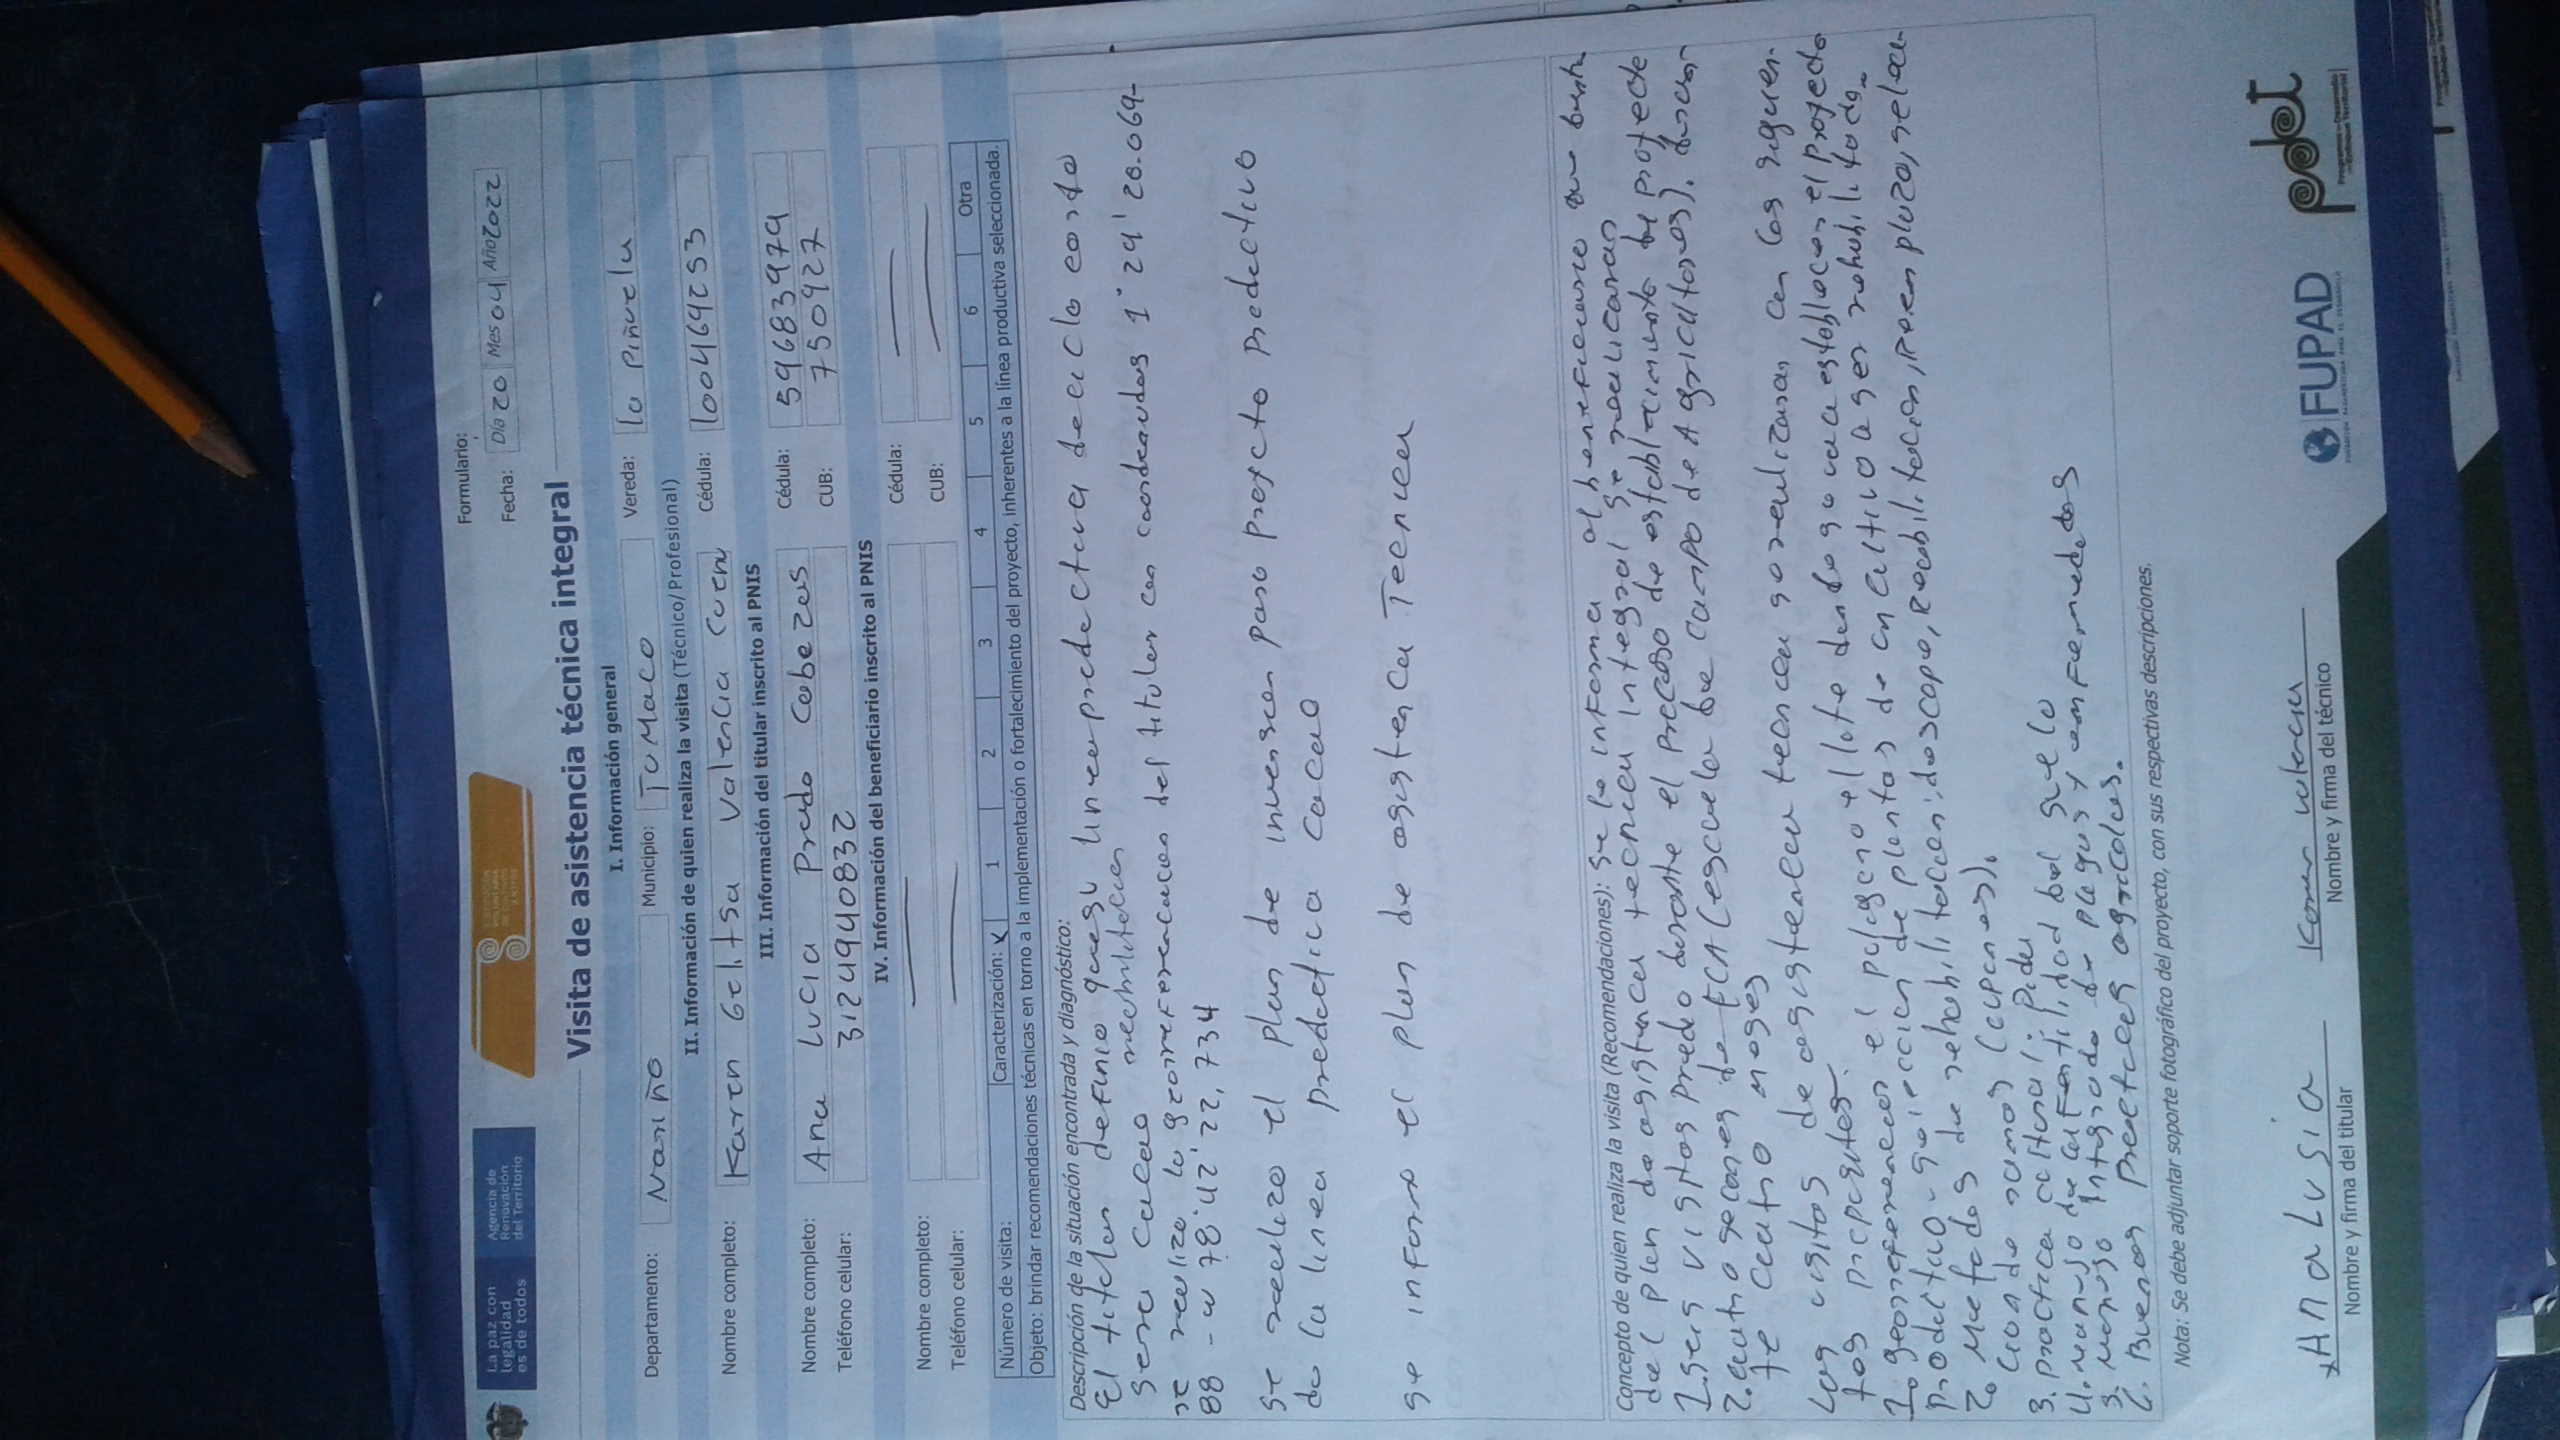 La paz con
legalidad
es de todos
Agencia de
Renovación
del Territorio
Formulario:
Fecha: Día 20 Mes 04 Año 2022
Visita de asistencia técnica integral
I. Información general
Departamento: Nariño Municipio: TuMaco Vereda: la Piñuela
II. Información de quien realiza la visita (Técnico/ Profesional)
Nombre completo: Karen Gelitsa Valencia Cuem Cédula: 1004642533
III. Información del titular inscrito al PNIS
Nombre completo: Ana Lucia Prado Cabezas Cédula: 59683979
Teléfono celular: 3124940832 CUB: 750927
IV. Información del beneficiario inscrito al PNIS
Nombre completo: Cédula:
Teléfono celular: CUB:
Número de visita: Caracterización: X 1 2 3 4 5 6 Otra
Objeto: brindar recomendaciones técnicas en torno a la implementación o fortalecimiento del proyecto, inherentes a la línea productiva seleccionada.
Descripción de la situación encontrada y diagnóstico:
El titular definio que su linea productiva de ciclo corto
sera cacao
se realizo la georreferenciacion del titular con coordenadas 1° 24' 26.069-
88 - w 78° 42' 22,734
se realizo el plan de inversion para proyecto productivo
de la linea productiva cacao
se informo el plan de asistencia Tecnica
Concepto de quien realiza la visita (Recomendaciones): se le informa al beneficiario que
del plan de asistencia tecnica integral se realizaran
1. seis visitas predio durante el proceso de establecimiento de proyecto
2. cuatro seciones de ECA (escuela de campo de Agricultores). duran
te cuatro meses
Las visitas de asistencia tecnica se realizaran con los siguien
tos
1. georreferenciar el poligono el lote donde se va a establecer el proyecto
productivo - seleccion de plantas de un cultivo a ser rehabilitado
2. Metodos de rehabilitacion: descope, recabilitacion, reemplazo, selec
cion de ramas (chupones).
3. practica cultural: Poda
4. manejo de la fertilidad del suelo
5. manejo integrado de plagas y enfermedades
6. Buenas practicas agricolas.
Nota: Se debe adjuntar soporte fotográfico del proyecto, con sus respectivas descripciones.
x Ana Lusia Karen Valencia
Nombre y firma del titular Nombre y firma del técnico
FUPAD
pdet